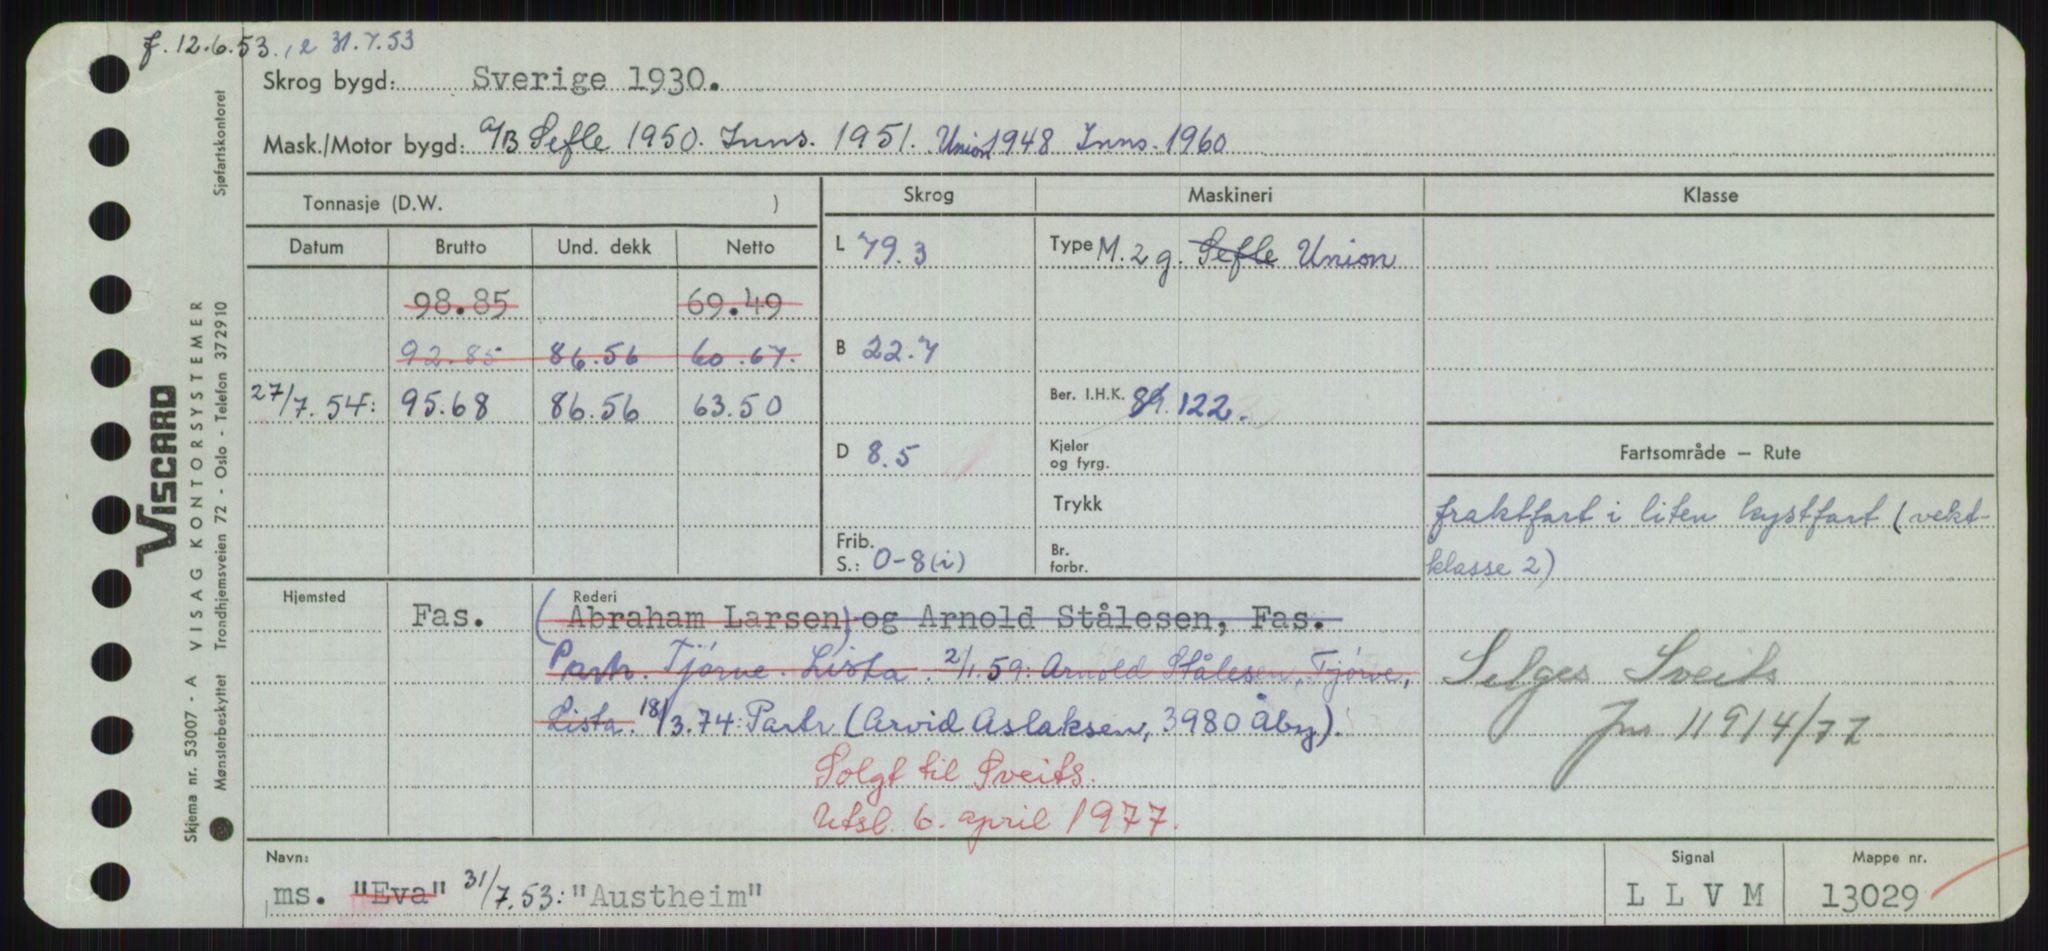 f. 12.6.53., e 31.7.53
Skrog bygd: Sverige 1930.
Mask./Motor bygd: A/B Sefle 1950. Inns. 1951. Union 1948 Inns. 1960
Tonnasje (D.W. )
Skrog
Maskineri
Klasse
Datum Brutto Und. dekk Netto
L 79.3
Type M. 2 g. Sefle Union
98.85 69.49
92.85 86.56 60.67.
B 22.7
27/7. 54: 95.68 86.56 63.50
Ber. I.H.K. 89. 122.
D 8.5
Kjeler
og fyrg.
Trykk
Frib.
S.: 0-8(i)
Br.
forbr.
Fartsområde – Rute
fraktfart i liten kystfart (vekt-
klasse 2)
Selges Sveits
Jnr 11914/77
Hjemsted
Fas.
Rederi
(Abraham Larsen) og Arnold Stålesen, Fas.
Partr. Tjörve. Lista. 2/1.59: Arnold Stålesen, Tjörve,
Lista. 18/3.74: Partr (Arvid Aslaksen, 3980 Åby).
Solgt til Sveits.
Utsl. 6. april 1977.
Navn:
ms. "Eva" 31/7.53: "Austheim"
Signal
L L V M
Mappe nr.
13029
VISCARD
Skjema nr. 53007 - A VISAG KONTORSYSTEMER
Mønsterbeskyttet Trondhjemsveien 72 - Oslo - Telefon 372910
Sjøfartskontoret